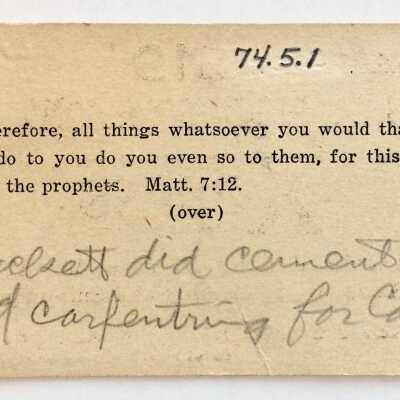 74.5.1
erefore, all things whatsoever you would tha
do to you do you even so to them, for this
the prophets. Matt. 7:12.
(over)
did cement
carpentring for Co